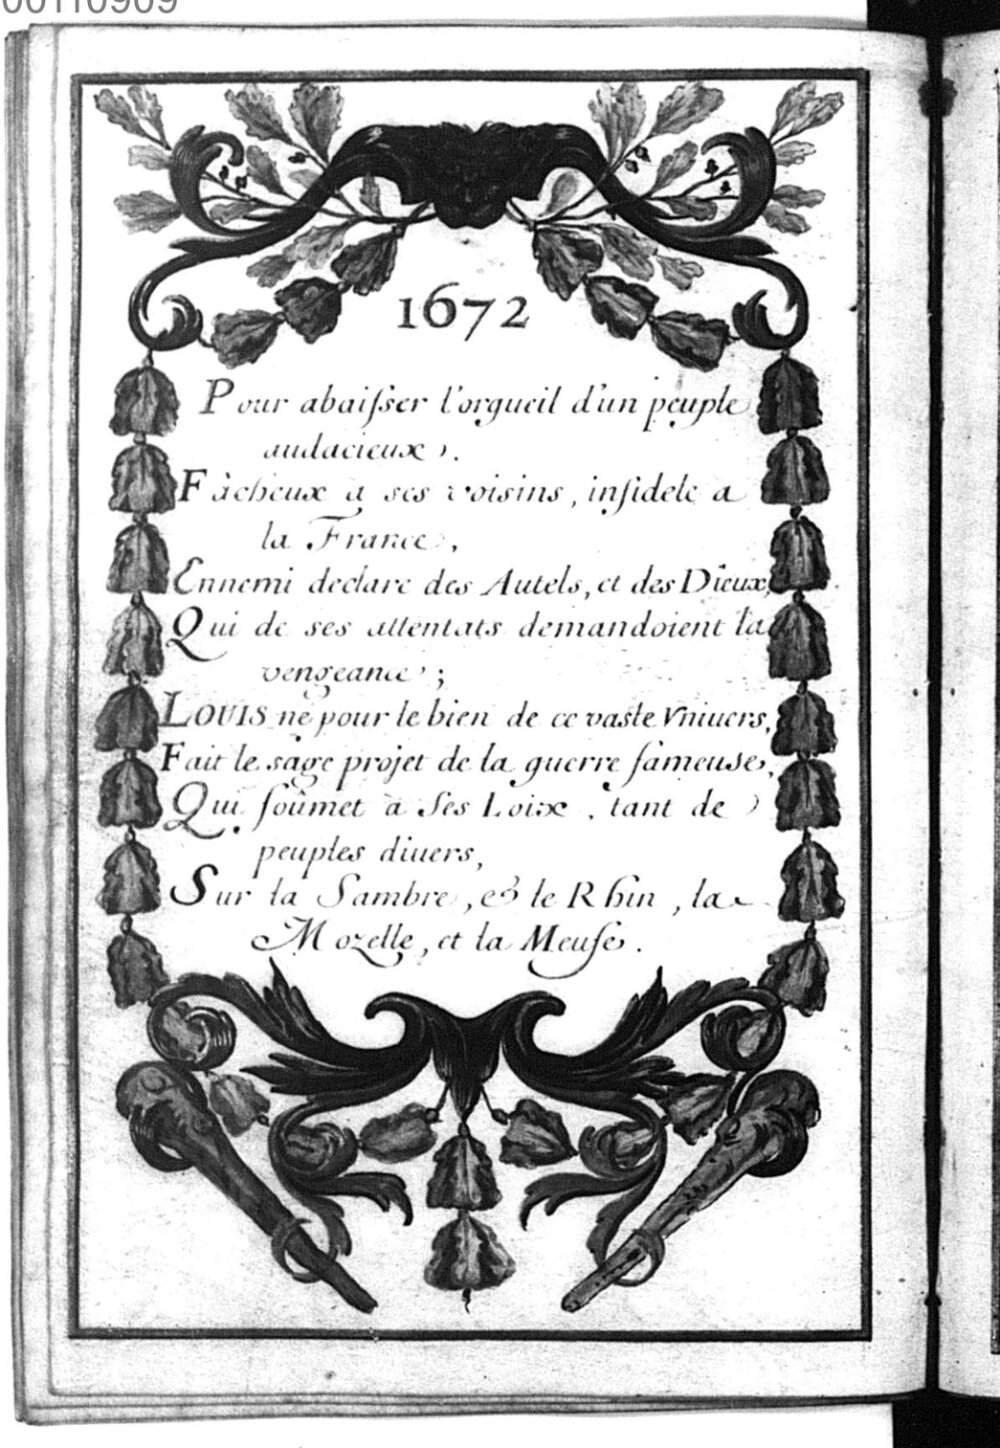 00110909
1672
Pour abaisser l'orgueil d'un peuple
audacieux,
Fâcheux a ses voisins, infidele a
la France,
Ennemi declare des Autels, et des Dieux,
Qui de ses attentats demandoient la
vengeance;
LOUIS né pour le bien de ce vaste Vniuers,
Fait le sage projet de la guerre fameuse,
Qui soûmet à Ses Loix, tant de
peuples diuers,
Sur la Sambre, & le Rhin, la
Mozelle, et la Meuse.